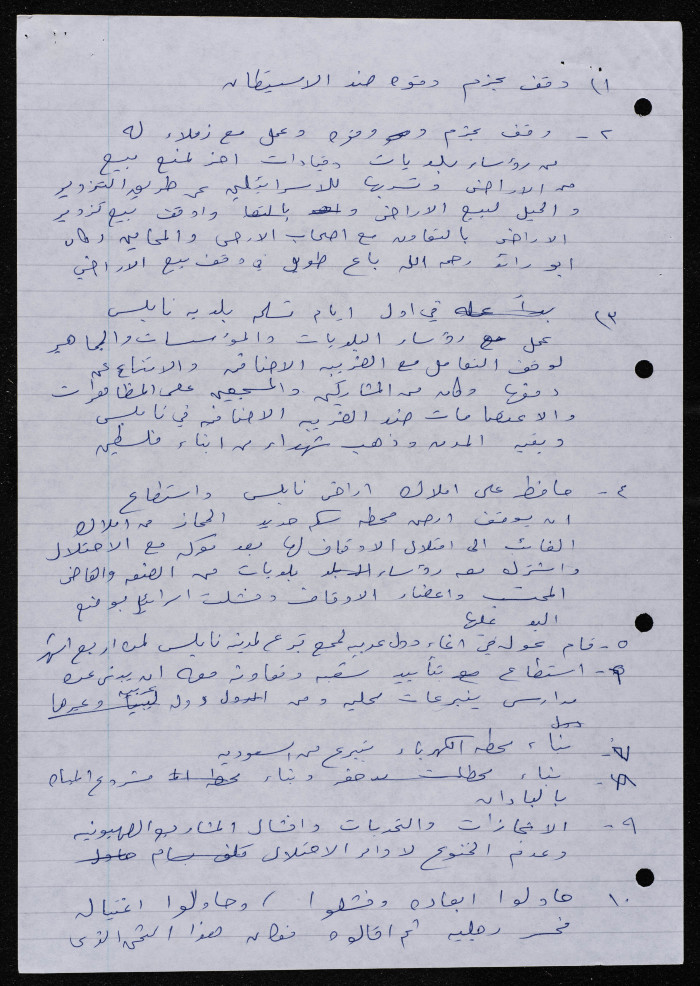 ١) وقف بحزم وقوه ضد الاستيطان
٢ - وقف بحزم وقوه وعمل مع زملاء له
من رؤساء بلديات وقيادات اخرى لمنع بيع
من الاراضي وتسربها للاسرائيلين عن طريق التزوير
و الحيل لبيع الاراضي بالتها واوقف بيع تزوير
الاراضي بالتعاون مع اصحاب الارض والمحامين وكان
ابو رائد رحمه الله باع طويل في وقف بيع الاراضي
٣) بدأ عمله في اول ايام تسلمه بلديه نابلس
عمل مع رؤساء البلديات والمؤسسات والجماهير
لوقف التعامل مع الضريبه الاضافيه والامتناع عن
دفعها وكان من المشاركين والمشجعين على المظاهرات
والاعتصامات ضد الضريبه الاضافيه في نابلس
وبقيه المدن وذهب شهداء من ابناء فلسطين
٤ - حافظ على املاك اراضي نابلس واستطاع
ان يوقف ارض محطه سكه حديد الحجاز من املاك
الغائب الى املاك الاوقاف لها بعد معركه مع الاحتلال
واشترك معه رؤساء بلديات من الضفه والقاضي
واعضاء الاوقاف وفشلت اسرائيل بوضع
اليد عليها
٥ - قام بجوله في انحاء دول عربيه لجمع تبرع لمدينه نابلس لمده اربع اشهر
٦ - استطاع مع تأييد شعبه وتعاونه معه ان يبني عده
مدارس بتبرعات محليه ومن الدول دوله ليبيا عربيه وغيرها
٧ - بناء محطه الكهرباء بتبرع من السعوديه
٨ - بناء وبناء محطه مشروع المياه
بالباذان
٩ - الانجازات والتحديات وافشال المشاريع الصهيونيه
وعدم الخنوع لاوامر الاحتلال كلف بسام حاول
١٠ حاولوا ابعاده وفشلوا / وحاولوا اغتياله
فخسر رجليه ثم اقالوه فكان هذا الثمن الذي